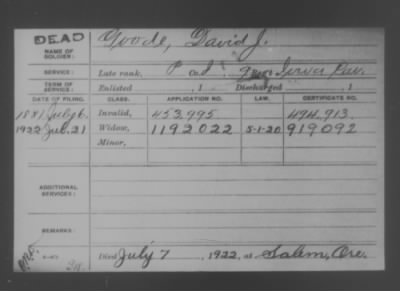 DEAD Goode, David J.
NAME OF SOLDIER:
SERVICE: Late rank, P Co. I, 9 Iowa Cav.
TERM OF SERVICE: Enlisted , 1 Discharged , 1
DATE OF FILING. CLASS. APPLICATION NO. LAW. CERTIFICATE NO.
1881 July 6. Invalid, 453,995 494,913.
1922 Jul. 21 Widow, 1192022 5-1-20 919092
Minor,
ADDITIONAL SERVICES:
REMARKS:
Died July 7, 1922, at Salem, Ore.